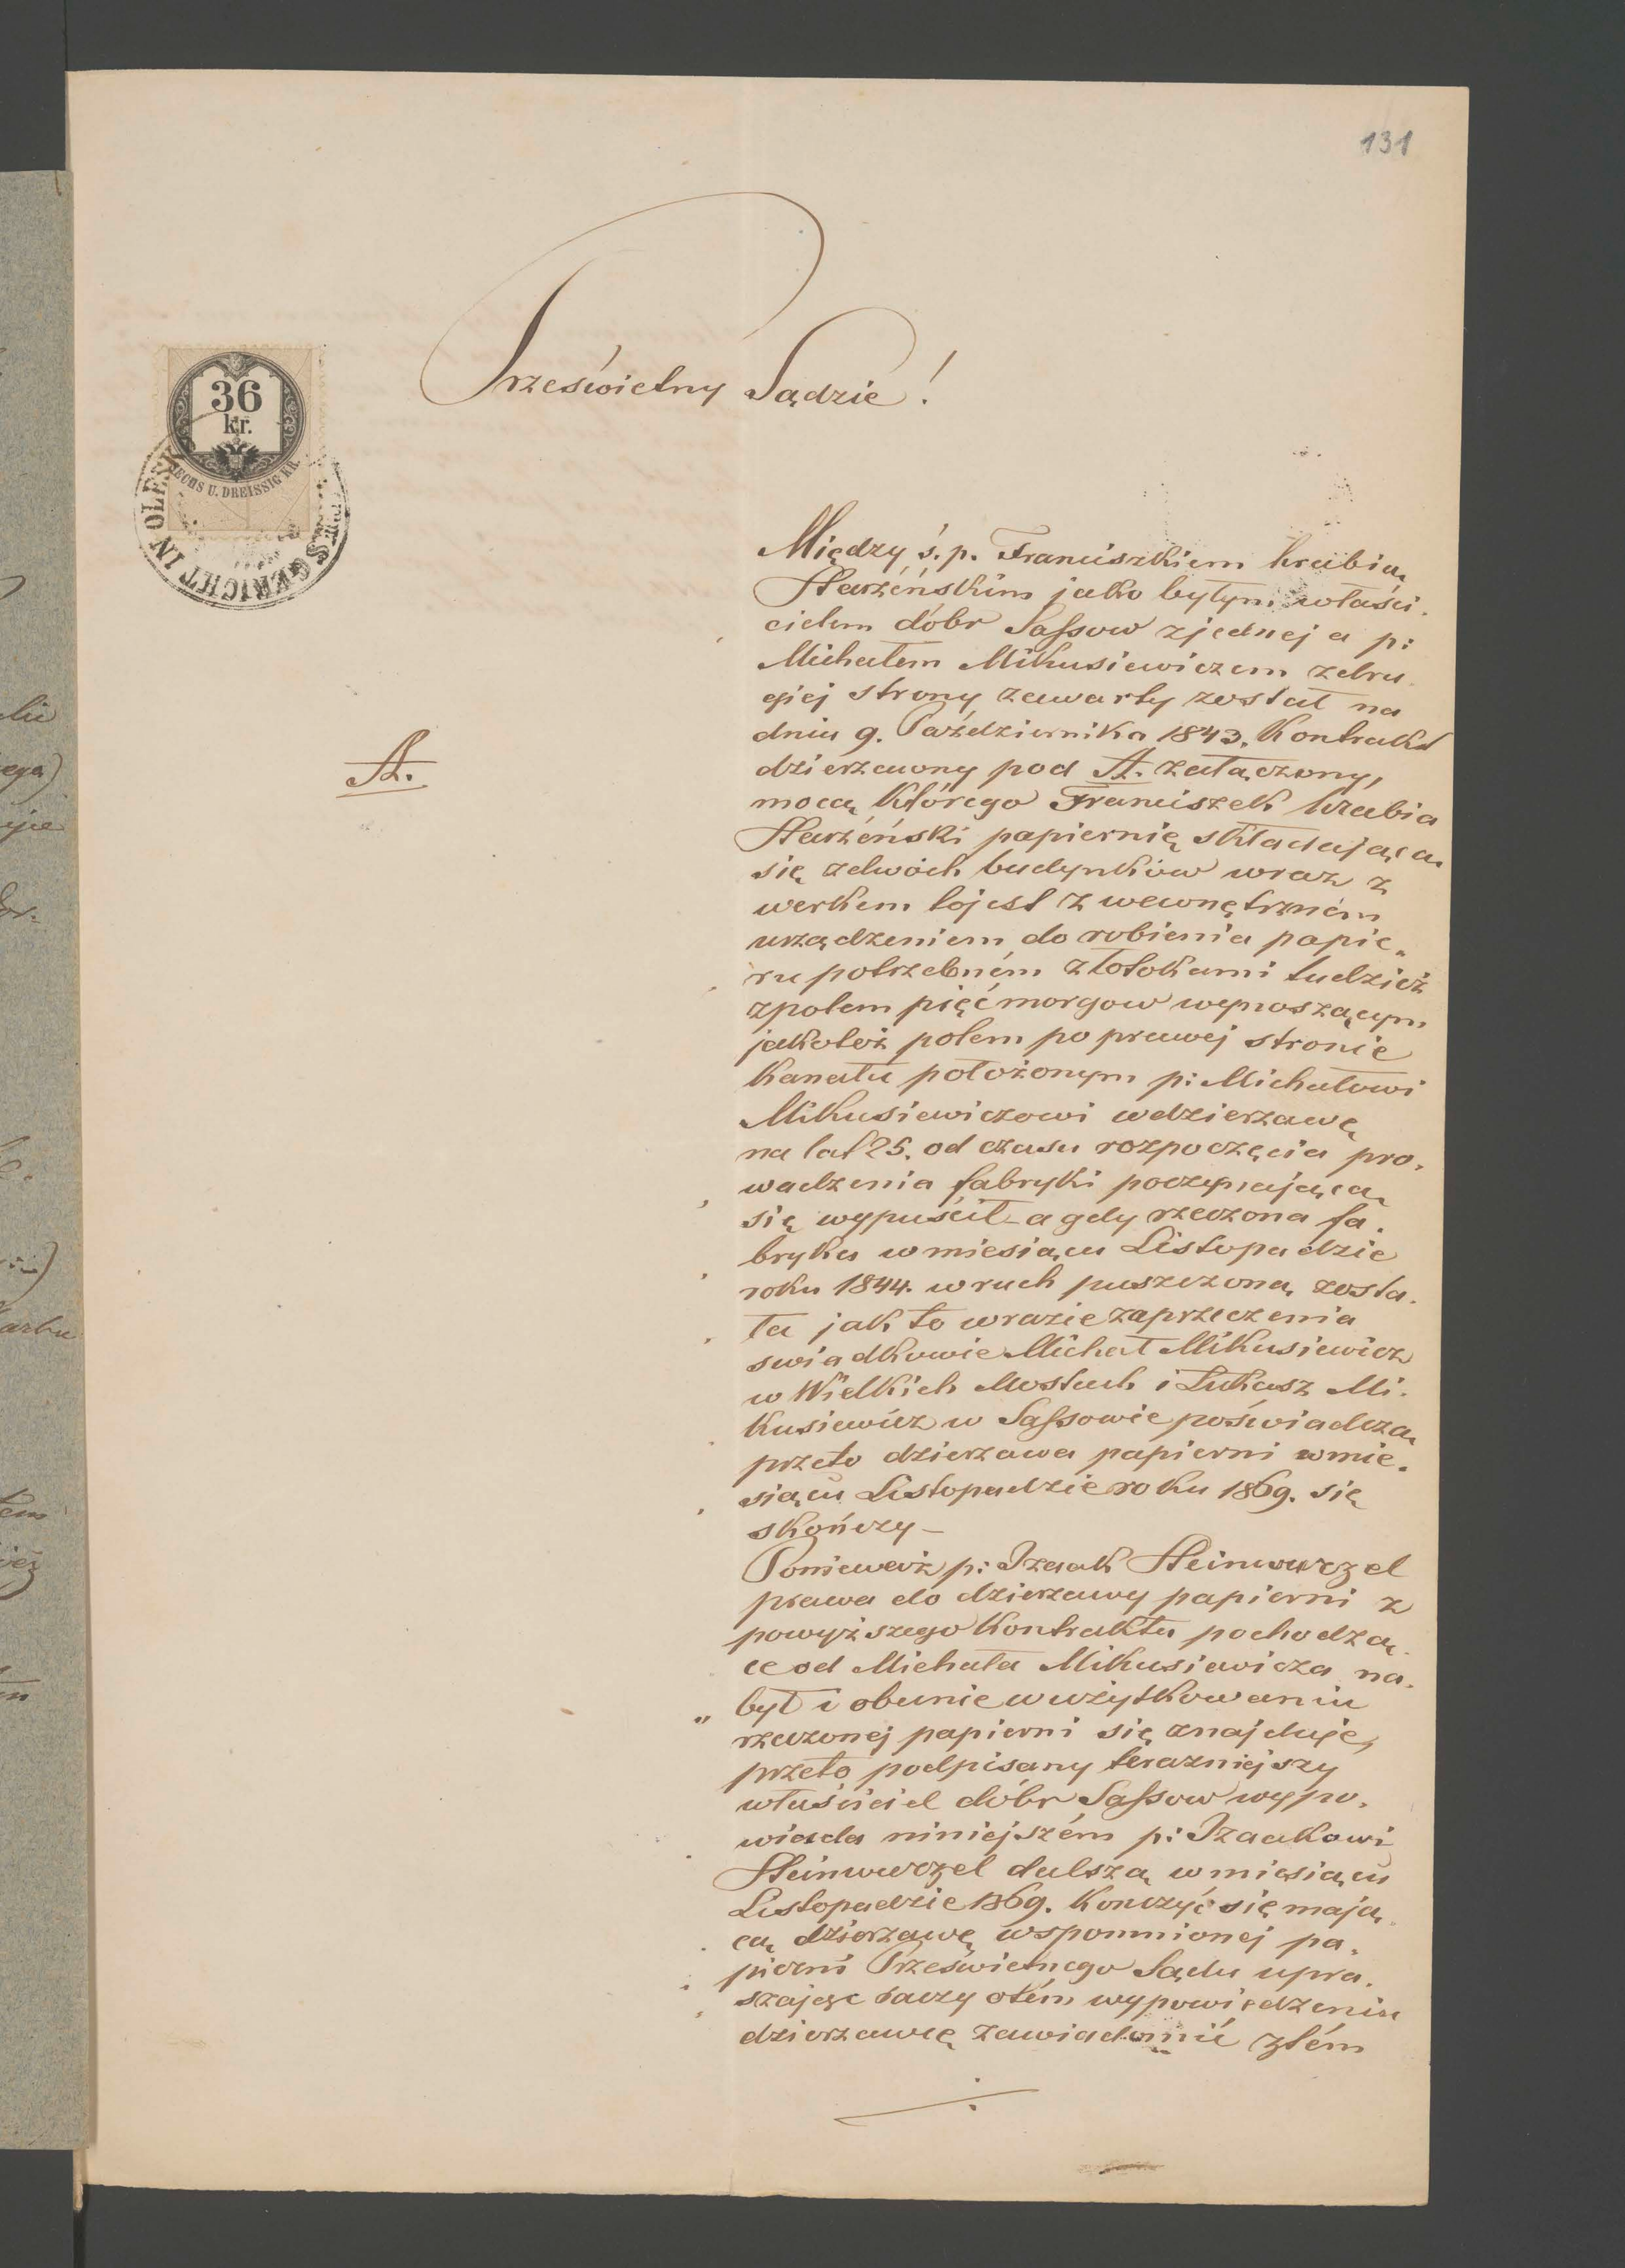 131
Prześwietny Sądzie!
36
kr.
SECHS U. DREISSIG KR.
SGERICHT IN OLEX
Między ś. p. Franciszkiem hrabią
Starzéńskim jako byłym właści.
cielem dóbr Saſsow zjednej a p:
Michałem Mikusiewiczem zdru.
giej strony zawarty został na
dniu 9. Października 1843. Kontrakt
A.
dzierzawny pod A. załączony,
mocą którego Franciszek hrabia
Starzéński papiernię składającą
się zdwóch budynków wraz z
werkem tojest z wewnętrzném
urządzeniem do robienia papie„
ru potrzebném ztotokami tudzież
zpolem pięć morgow wynoszącym
jakoteż polem po prawej stronie
Kanału położonym p: Michałowi
Mikusiewiczowi wdzierzawę
na lat 25. od czasu rozpoczęcia pro.
wadzenia fabryki poczynającą
się wypuścił – a gdy rzeczona fa.
bryka w miesiącu Listopadzie
roku 1844. w ruch puszczoną zosta.
ła jak to wrazie zaprzeczenia
swiadkowie Michał Mikusiewicz
w Wielkich Mostach i Łukasz Mi.
kusiewicz w Saſsowie poświadczą
przeto dzierzawa papierni w mie.
siącu Listopadzie roku 1869. się
skończy –
Ponieważ p: Izaak Steinwurzel
prawa do dzierzawy papierni z
powyższego Kontraktu pochodzą.
ce od Michała Mikusiewicza na.
był i obecnie w użytkowaniu
rzeczonej papierni się znajduje,
przeto podpisany terazniejszy
właściciel dóbr Saſsow wypo.
wiada niniejszém p: Izaakowi
Steinwurzel dalszą w miesiącu
Listopadzie 1869. Konczyć się mają.
cą dzierzawę wspomnionej pa.
pierni Prześwietnego Sądu upra.
szając raczy otém wypowiedzeniu
dzierzawcę zawiadomić ztém
./.